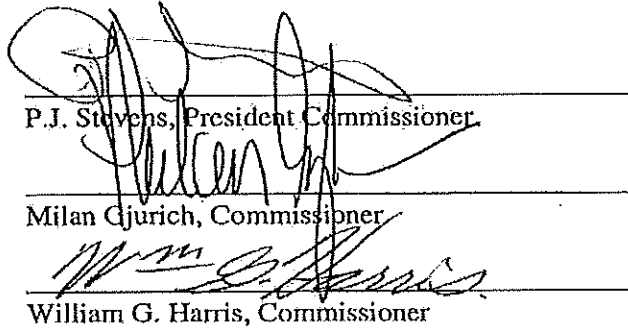 P.J. Stevens, President Commissioner
Milan Gjurich, Commissioner
Wm G. Harris
William G. Harris, Commissioner